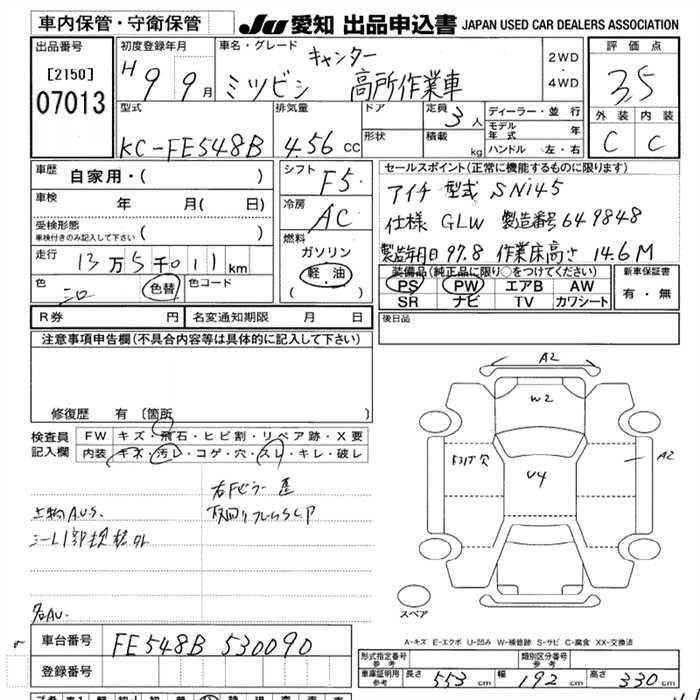 車内保管・守衛保管 JU 愛知 出品申込書 JAPAN USED CAR DEALERS ASSOCIATION
出品番号
[2150]
07013
初度登録年月
H 9 9月
車名・グレード
キャンター
ミツビシ 高所作業車
2WD
・
4WD
評価点
3.5
外装 内装
C C
型式
KC-FE548B
排気量
4.56 CC
ドア
形状
定員
3人
積載
kg
ディーラー・並行
モデル年式 年
ハンドル 左・右
車歴
自家用・( )
車検
年 月( 日)
受検形態
車検付きのみ記入して下さい ( )
走行
13万5千011km
色
シロ
色替
色コード
シフト
F5
冷房
AC
燃料
ガソリン
軽油
( )
セールスポイント(正常に機能するものに限ります)
アイチ 型式 SN145
仕様 GLW 製造番号649848
製造年月日 97.8 作業床高さ 14.6M
装備品(純正品に限り○をつけてください)
PS PW エアB AW
SR ナビ TV カワシート
新車保証書
有・無
R券 円
名変通知期限 月 日
後日品
注意事項申告欄(不具合内容等は具体的に記入して下さい)
修復歴 有(箇所 )
検査員
記入欄
FW キズ・飛石・ヒビ割・リペア跡・X要
内装 キズ・汚レ・コゲ・穴・スレ・キレ・破レ
上物A.U.S.
A2
W2
U4
A2
スペア
A-キズ E-エクボ U-凹み W-補修跡 S-サビ C-腐食 XX-交換済
車台番号
FE548B 530090
登録番号
型式指定番号
参考
類別区分番号
参考
車庫証明用
参考
長さ 553 cm 幅 192 cm 高さ 330 cm